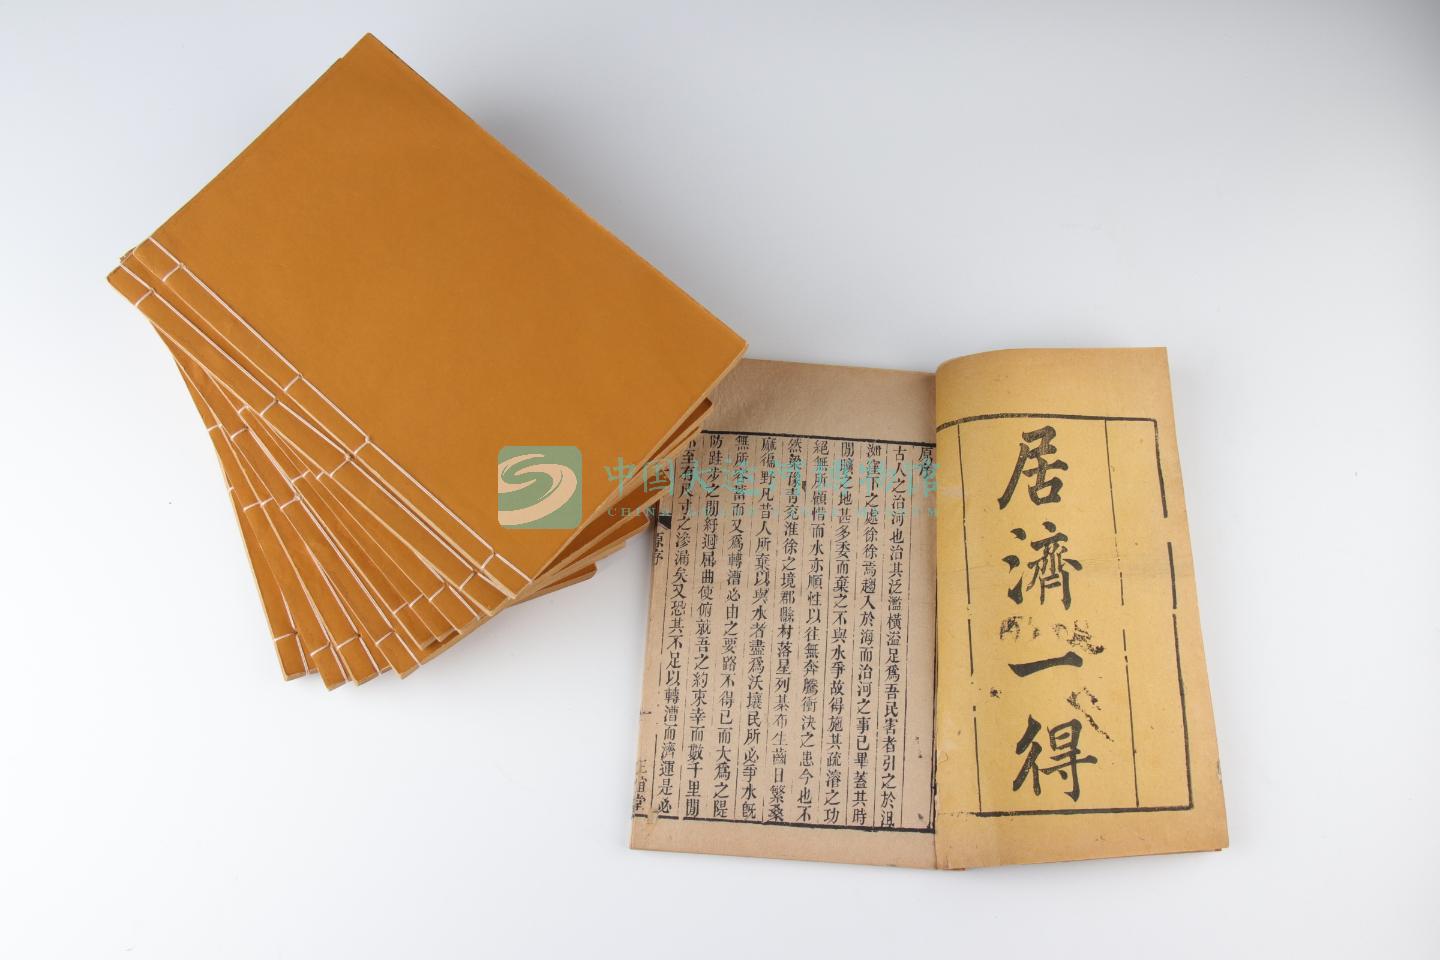 居濟一得
原
古人之治河也治其泛濫橫溢足爲吾民害者引之於沮
洳窪下之處徐徐焉趨入於海而治河之事已畢蓋其時
閒曠之地甚多委而棄之不與水爭故得施其疏溶之功
絕無所顧惜而水亦順性以往無奔騰衝決之患今也不
然豫青兗淮徐之境郡縣村落星列棊布生齒日繁桑
麻徧野凡昔人所棄以與水者盡爲沃壤民所必爭水旣
無所容蓄而又爲轉漕必由之要路不得已而大爲之隄
防跬步之閒紆迴屈曲使俯就吾之約束幸而數千里閒
不至有尺寸之滲漏矣又恐其不足以轉漕而濟運是必
原序
正誼堂
中国大运河博物馆
CHINA GRAND CANAL MUSEUM